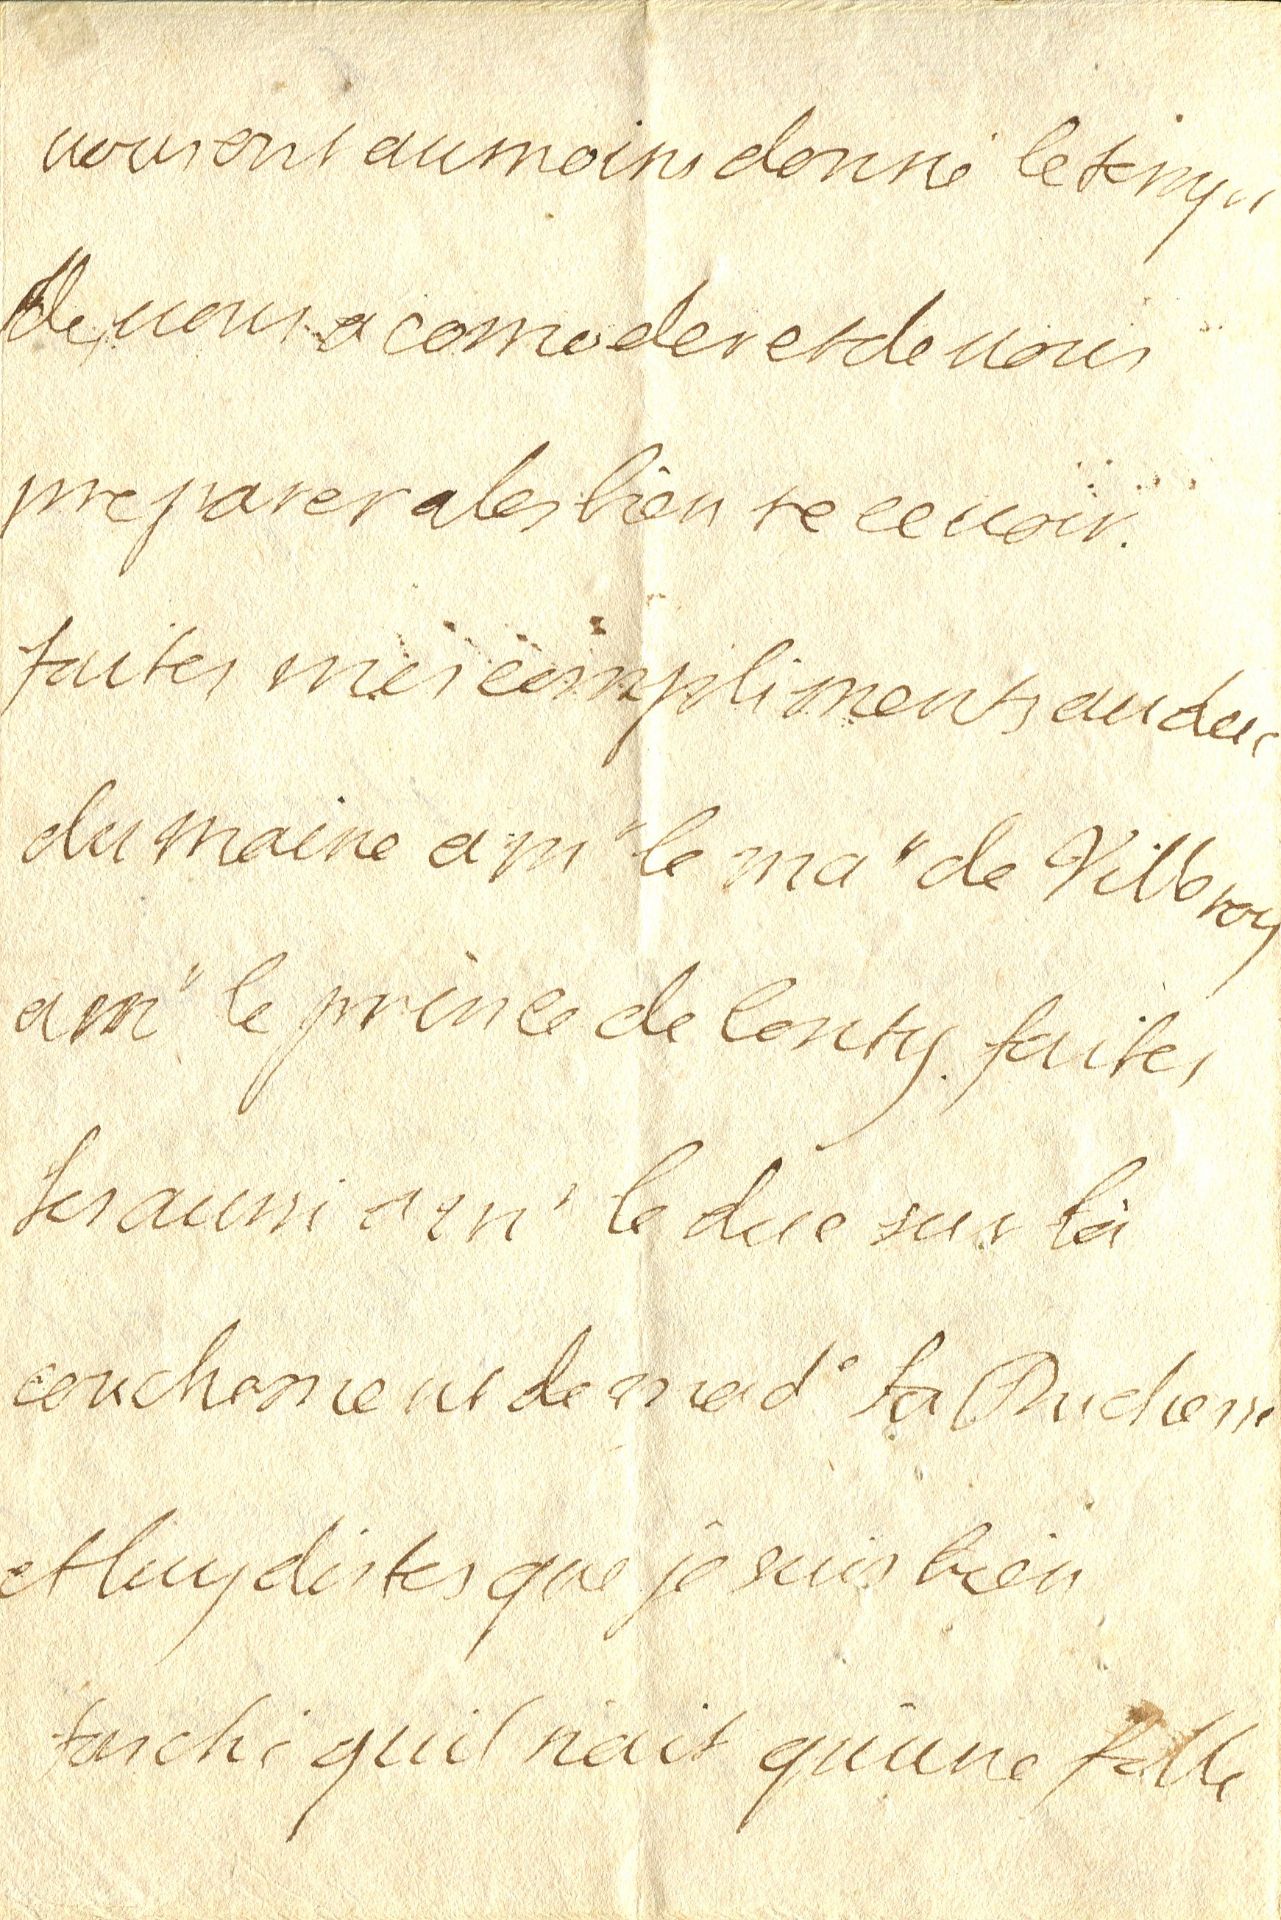 nous ont au moins donné le temps
de nous acomoder et de nous
preparer a les bien recevoir.
faites mes compliments au duc
du maine a mr le mal de Villeroy
a mr le prince de Conty. faites
les aussi a mr le duc sur la
couchement de made la Duchesse
et luy dites que je suis bien
faschè quil nait quune fille